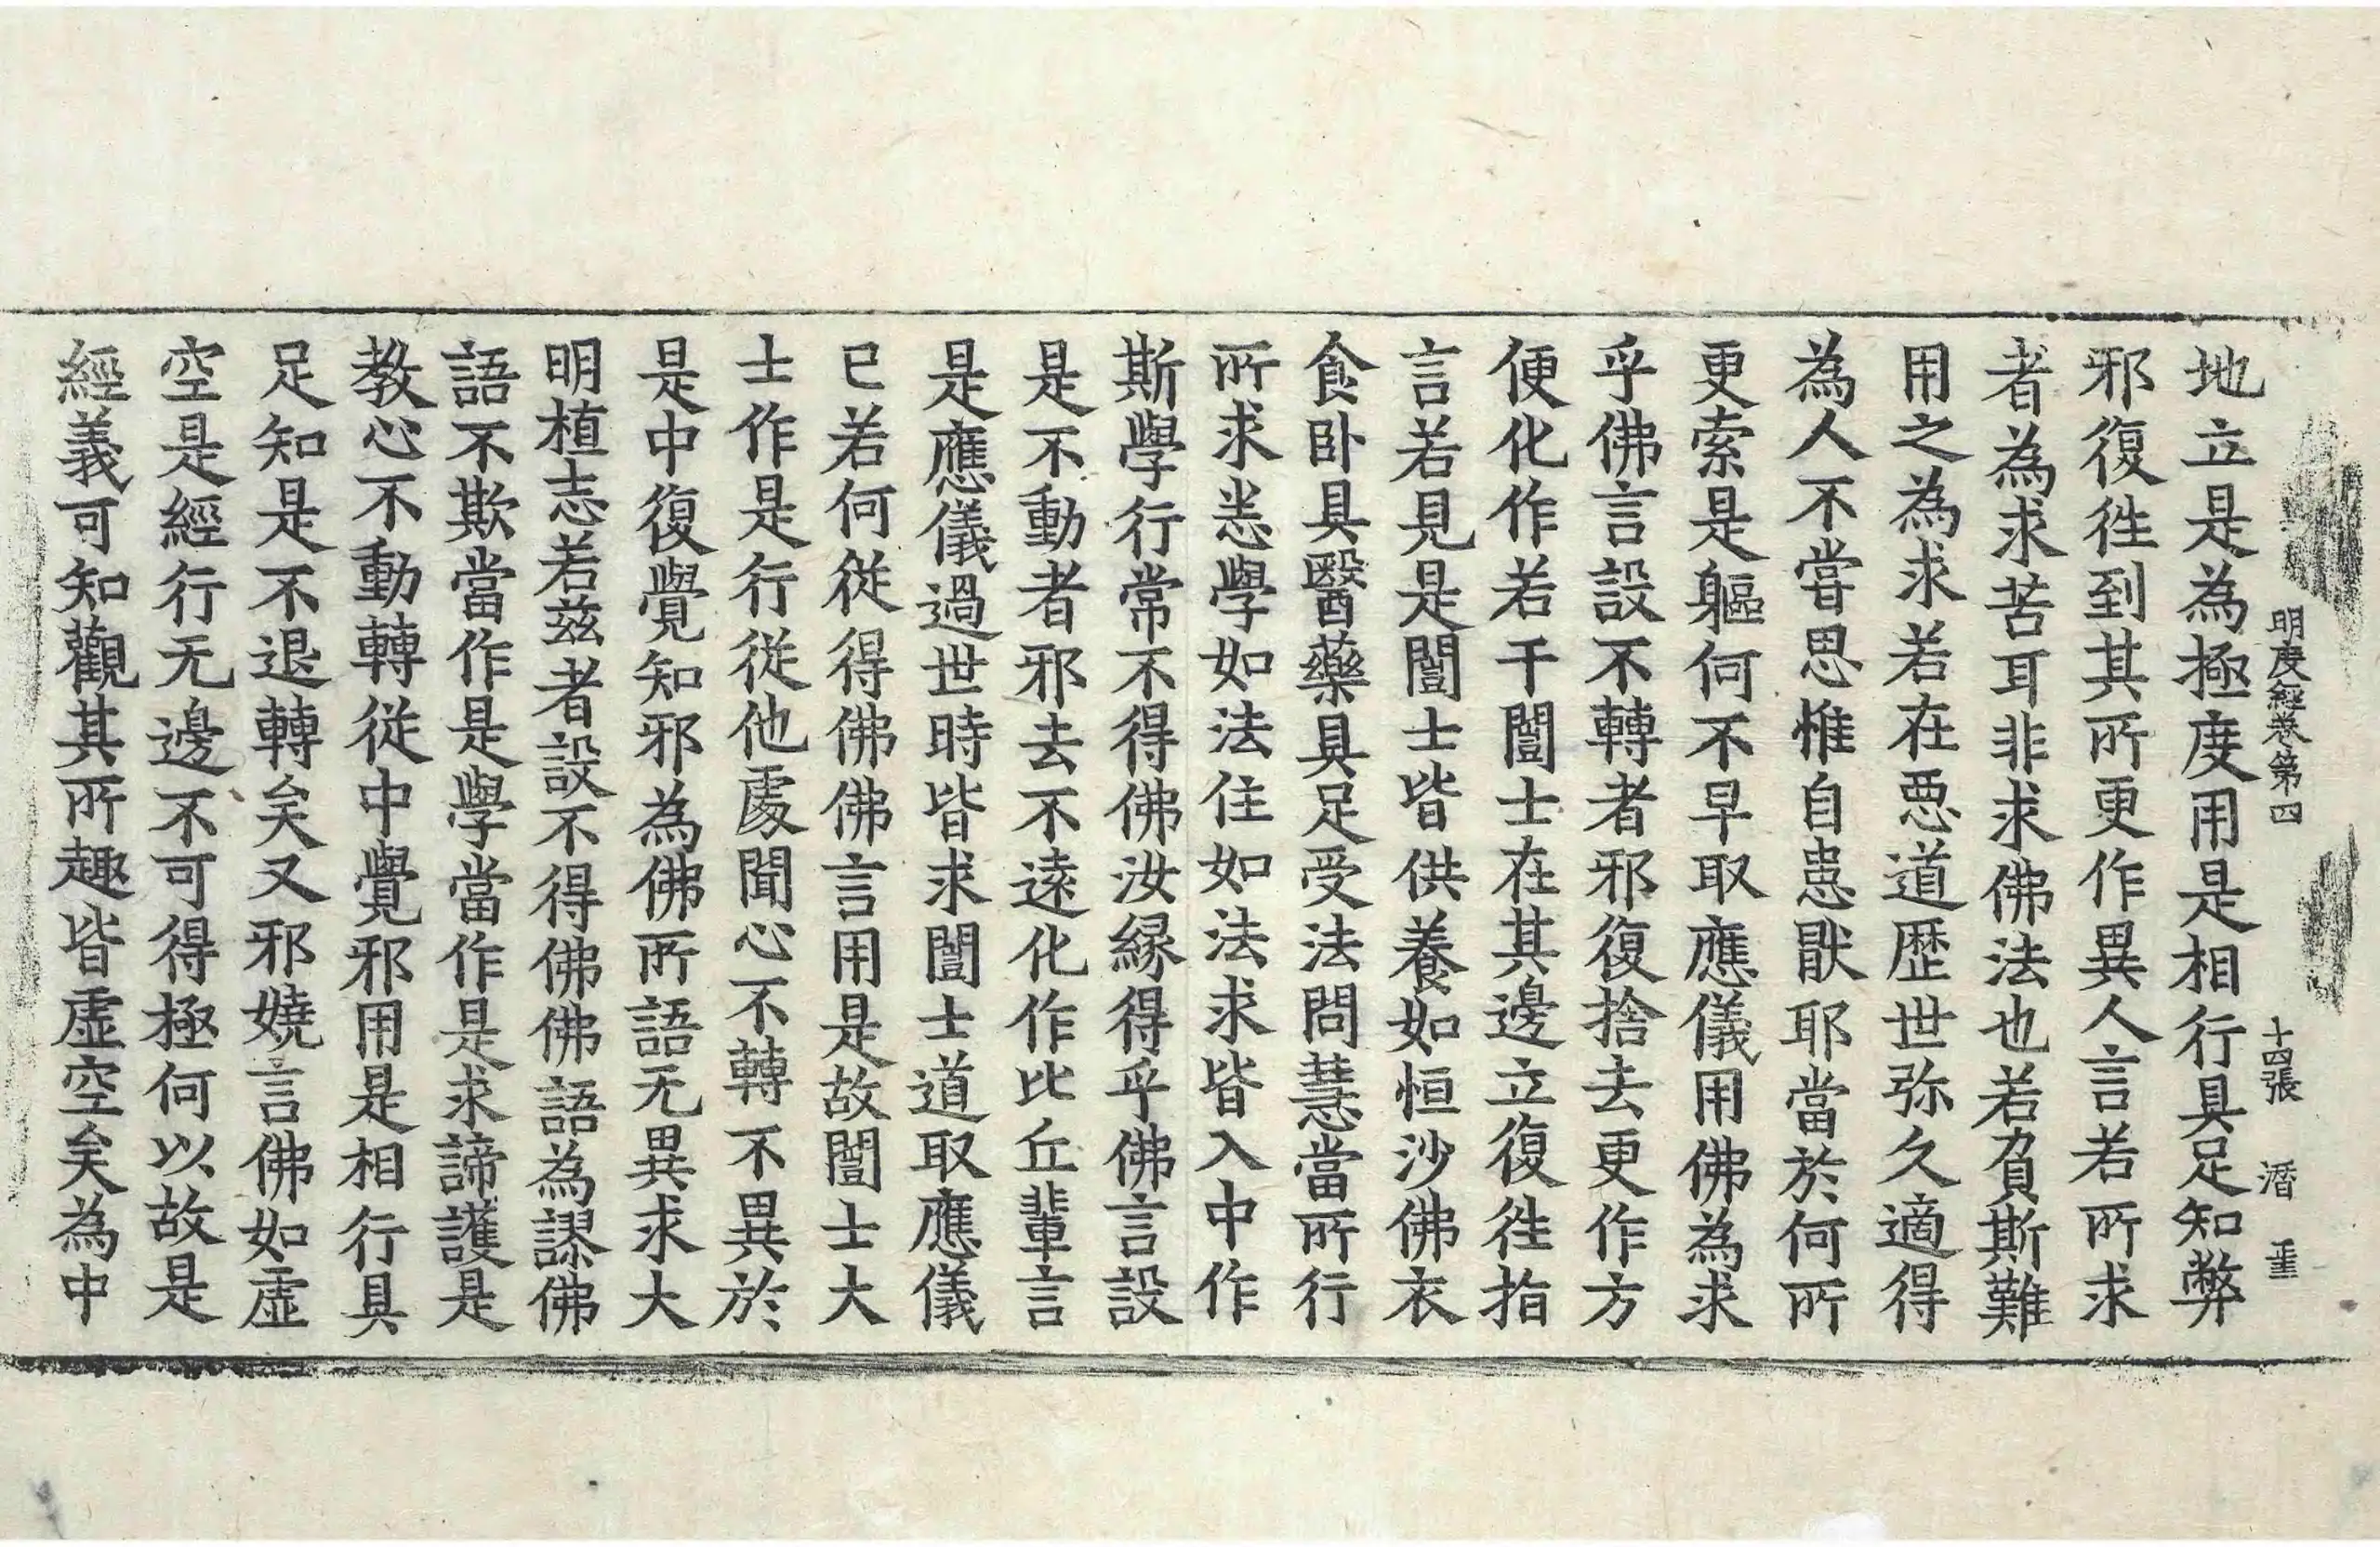 明度經卷第四 十四張 潛 重
地立是為極度用是相行具足知弊
邪復徃到其所更作異人言若所求
者為求苦耳非求佛法也若負斯難
用之為求若在惡道歷世弥久適得
為人不甞思惟自患猒耶當於何所
更索是軀何不早取應儀用佛為求
乎佛言設不轉者邪復捨去更作方
便化作若干闓士在其邊立復徃指
言若見是闓士皆供養如恒沙佛衣
食卧具醫藥具足受法問慧當所行
所求恙學如法住如法求皆入中作
斯學行常不得佛汝緣得乎佛言設
是不動者邪去不遠化作比丘輩言
是應儀過世時皆求闓士道取應儀
已若何從得佛佛言用是故闓士大
士作是行從他處聞心不轉不異於
是中復覺知邪為佛所語无異求大
明植志若兹者設不得佛佛語為謬佛
語不欺當作是學當作是求諦護是
教心不動轉從中覺邪用是相行具
足知是不退轉矣又邪嬈言佛如虛
空是經行无邊不可得極何以故是
經義可知觀其所趣皆虛空矣為中